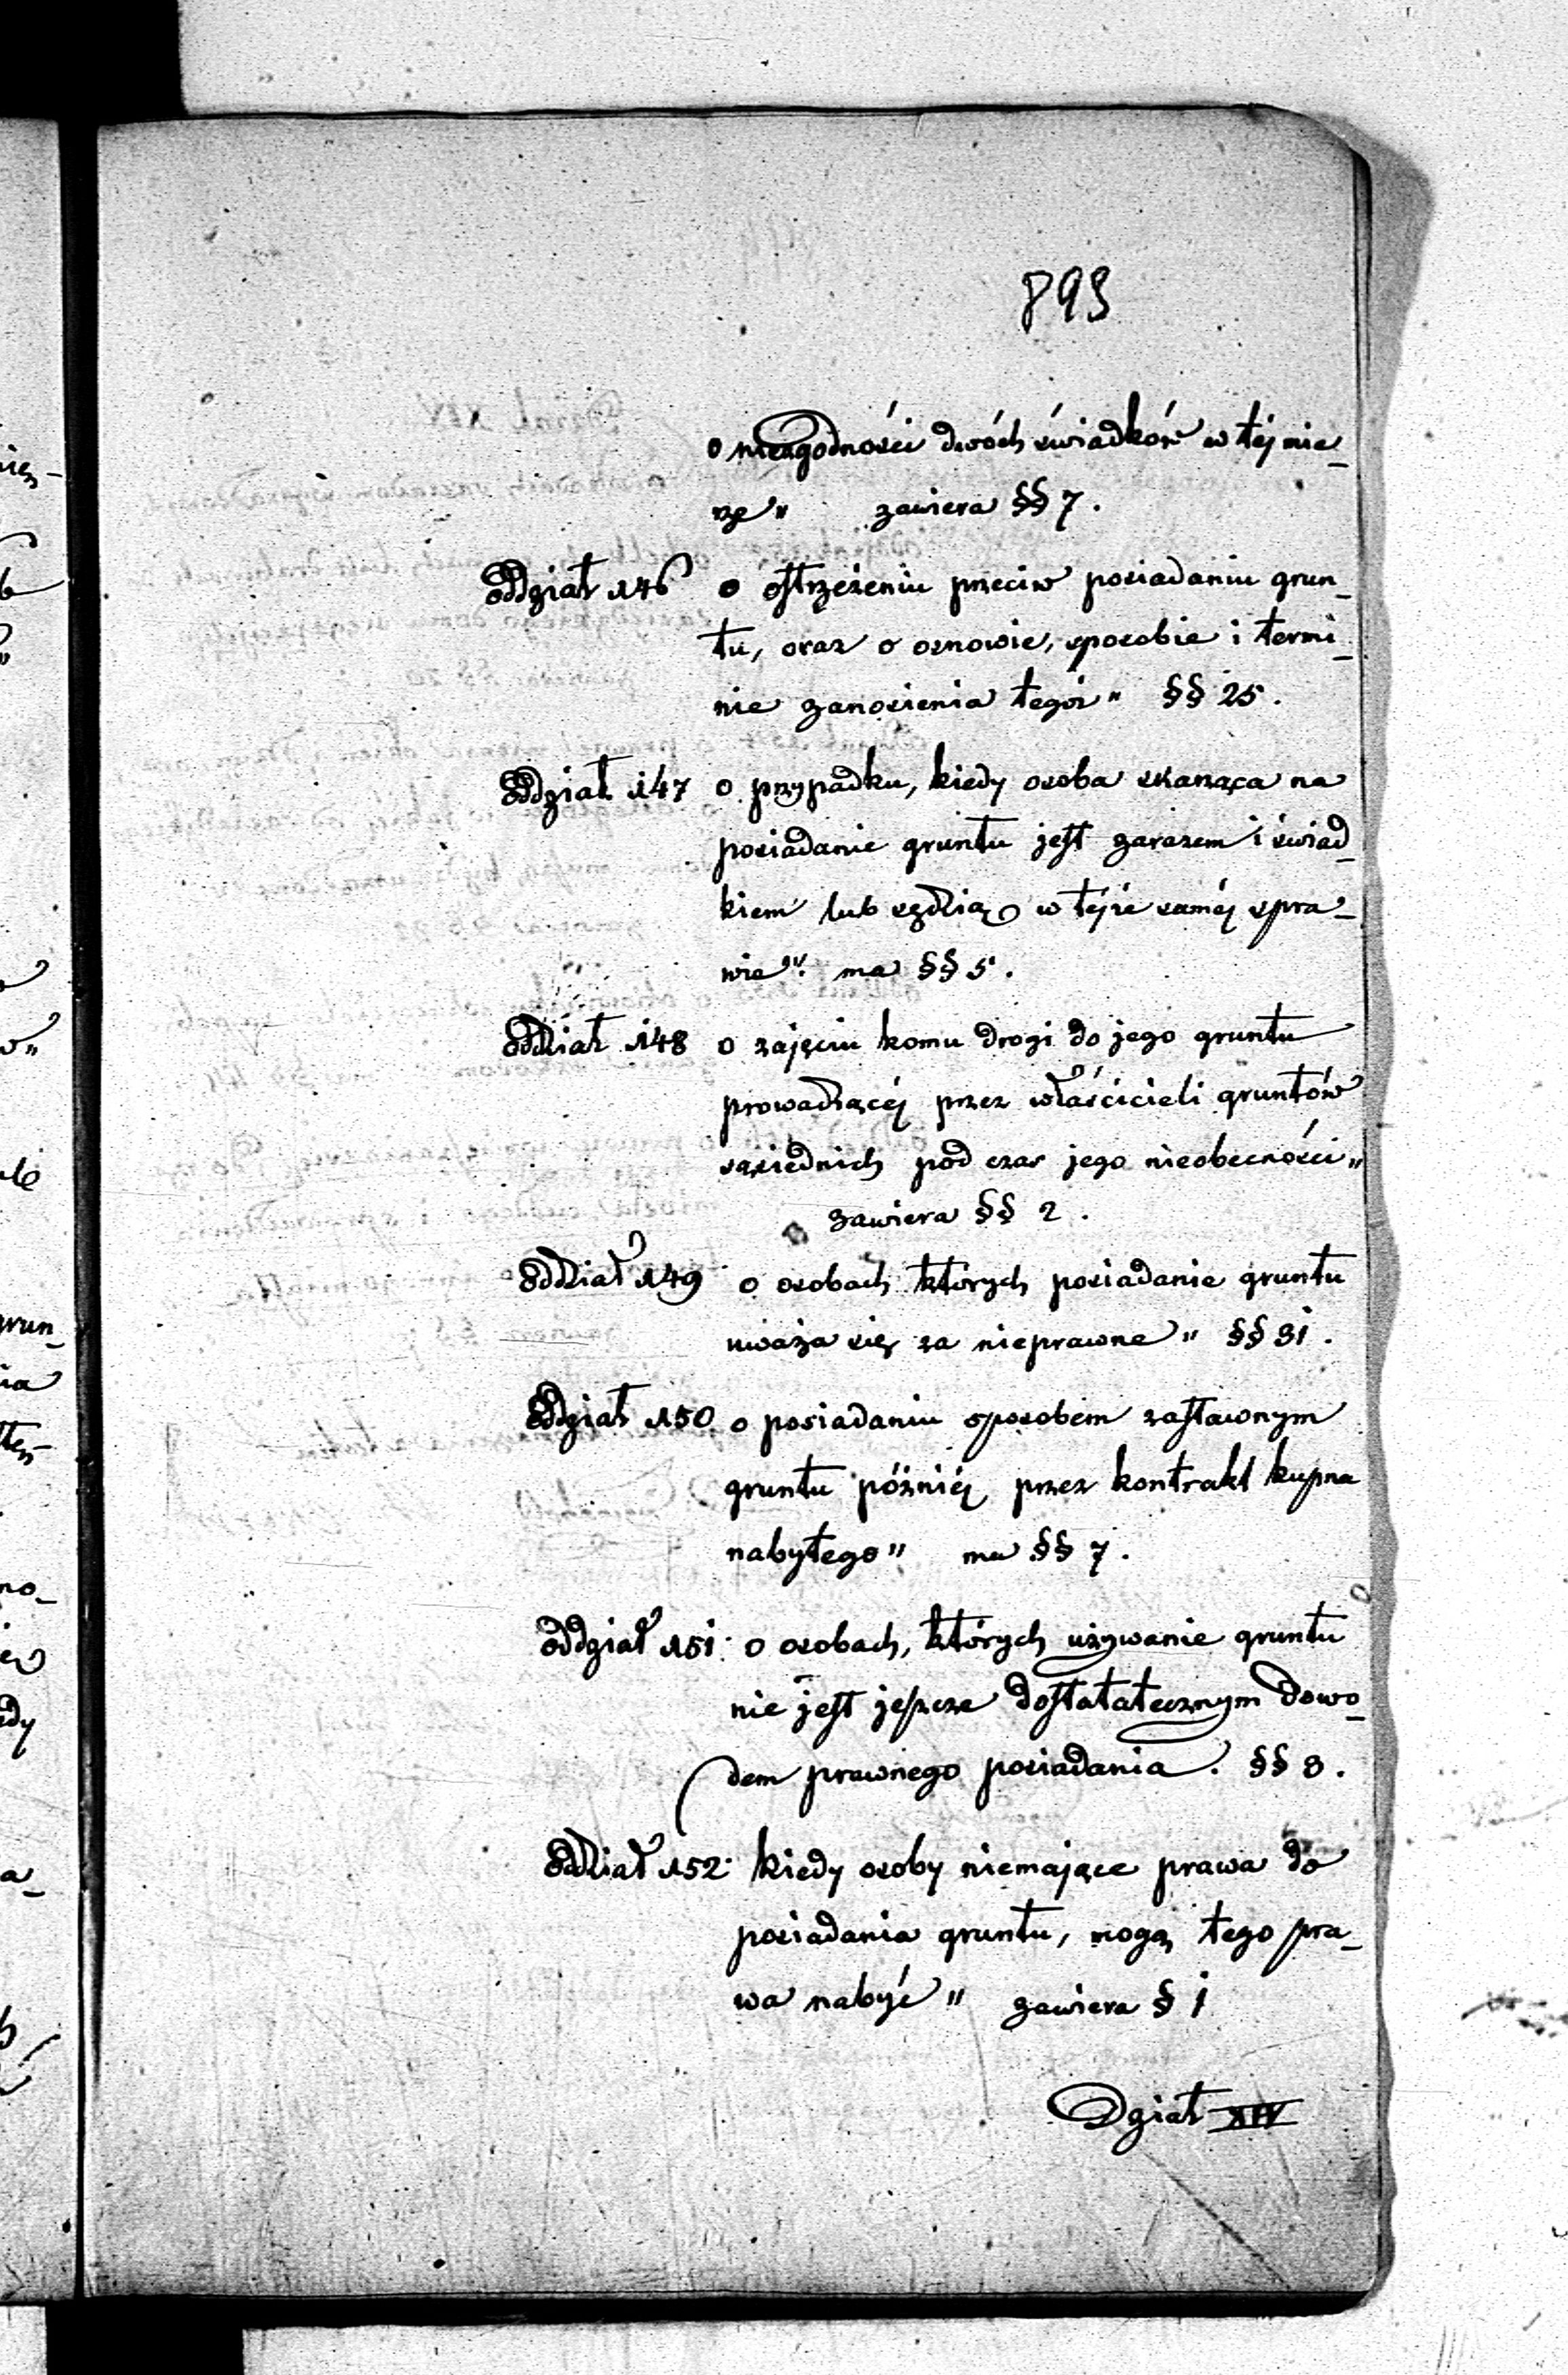 893
o niezgodności dwóch świadków w téj mie_
rze" zawiera §§ 7.
Oddział 146 o ostrzeżeniu przeciw posiadaniu grun_
tu, oraz o osnowie, sposobie i termi_
nie zanosienia tegoż" §§ 25.
Oddział 147 o przypadku, kiedy osoba skarżąca na
posiadanie gruntu jest zarazem i świad_
kiem lub sędzią w téjże saméj spra_
wie". ma §§ 5.
Oddział 148 o zajęciu komu drogi do jego gruntu
prowadzącéj przez właścicieli gruntów
sąsiednich pod czas jego nieobecności"
zawiera §§ 2.
Oddział 149 o osobach których posiadanie gruntu
uważa się za nieprawne" §§ 31.
Oddział 150 o posiadaniu sposobem zastawnym
gruntu późniéj przez kontrakt kupna
nabytego" ma §§ 7.
Oddział 151. o osobach, których używanie gruntu
nie jest jeszcze dostatatecznym dowo_
dem prawnego posiadania. §§ 8.
Oddział 152. kiedy osoby niemające prawa do
posiadania gruntu, mogą tego pra_
wa nabyć" zawiera § 1
Dział XIV